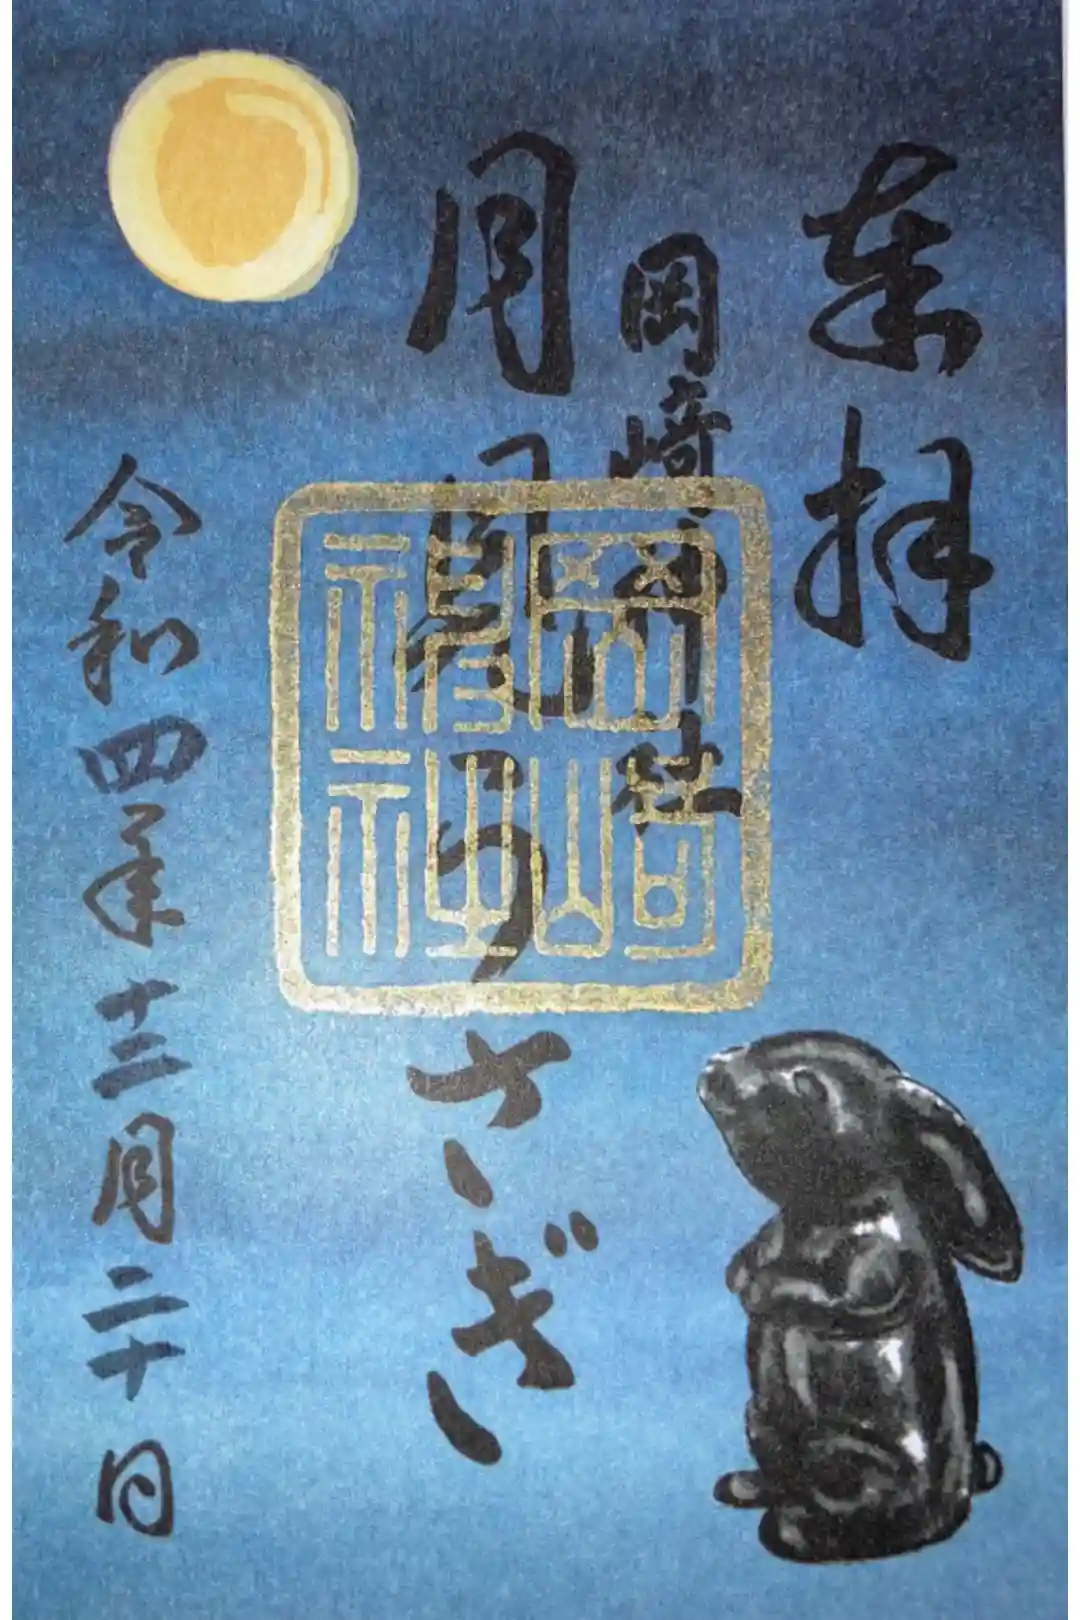 奉拝
岡崎神社
月見うさぎ
岡崎神社
令和四年十二月二十日